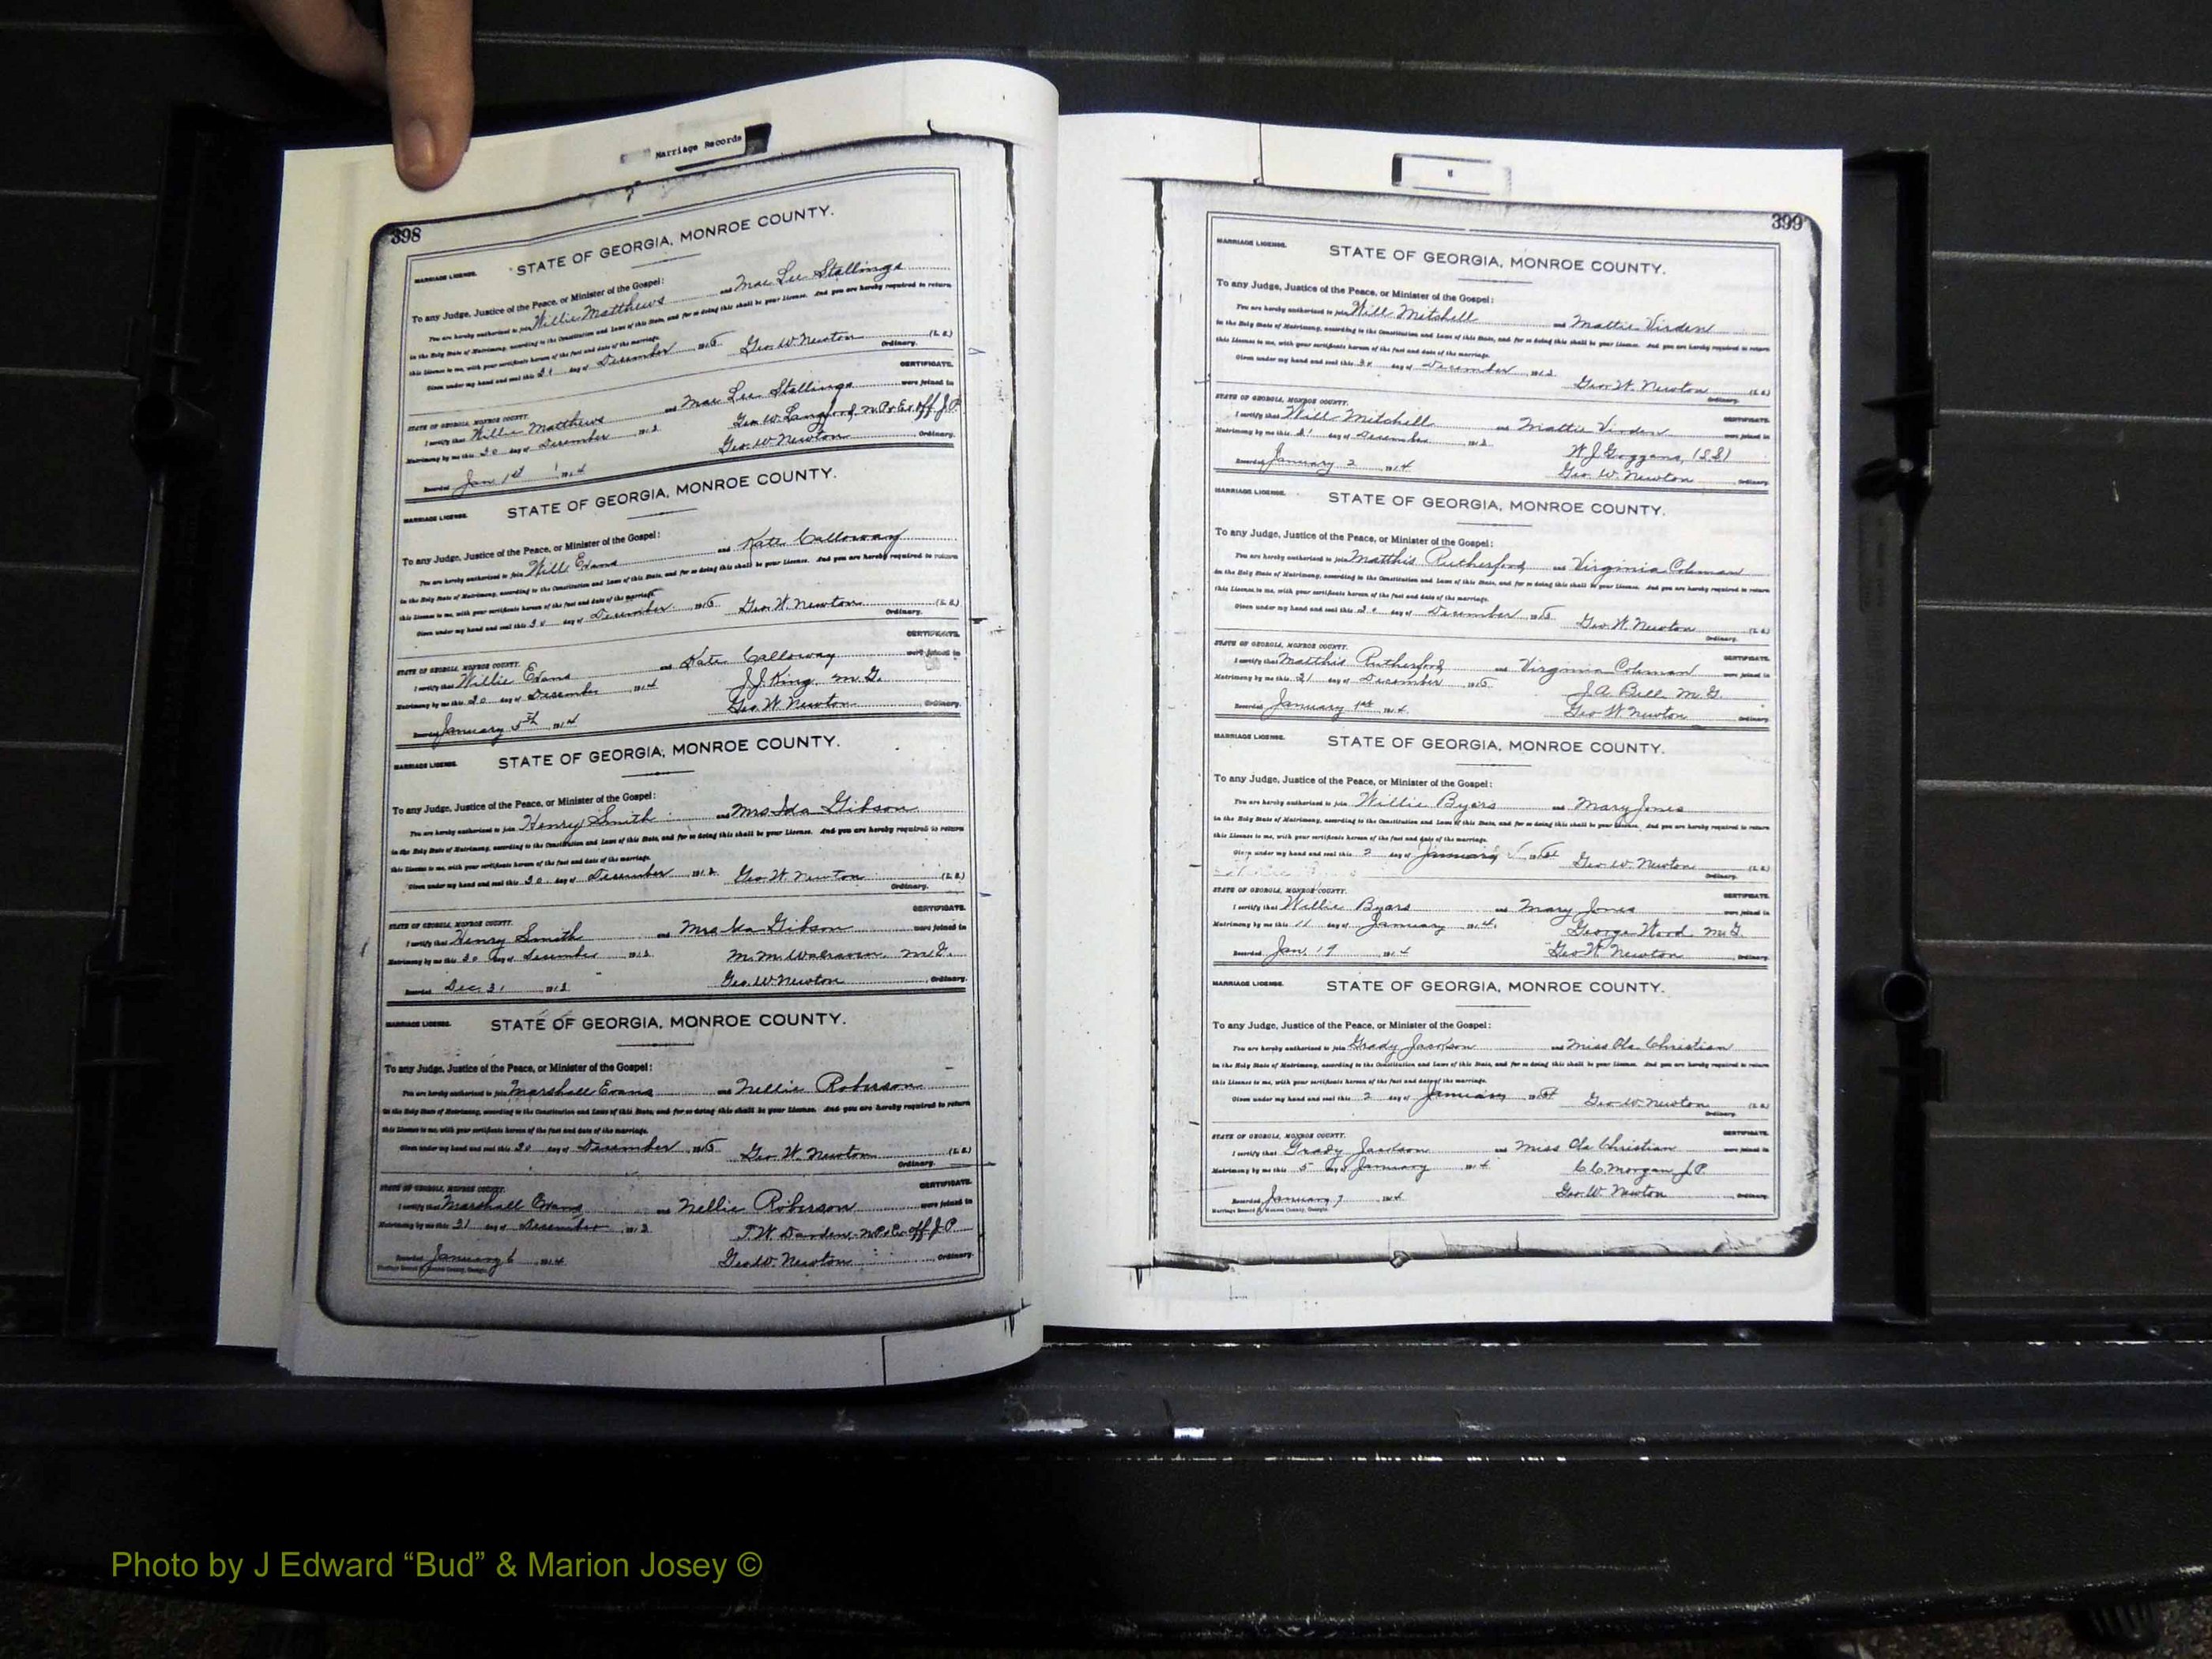 Marriage Records
398
MARRIAGE LICENSE. STATE OF GEORGIA, MONROE COUNTY.
To any Judge, Justice of the Peace, or Minister of the Gospel:
You are hereby authorized to join Willie Matthews and Mae Lee Stallings
in the Holy State of Matrimony, according to the Constitution and Laws of this State, and for so doing this shall be your License. And you are hereby required to return
this License to me, with your certificate hereon of the fact and date of the marriage.
Given under my hand and seal this 31 day of December 191 Geo. W. Newton (L. S.)
Ordinary.
CERTIFICATE.
STATE OF GEORGIA, MONROE COUNTY.
I certify that Willie Matthews and Mae Lee Stallings were joined in
Matrimony by me this 30 day of December 1913 Geo. W. Langford, N.P. & Ex. off J.P.
Recorded Jan 1st 1914 Geo. W. Newton Ordinary.
MARRIAGE LICENSE. STATE OF GEORGIA, MONROE COUNTY.
To any Judge, Justice of the Peace, or Minister of the Gospel:
You are hereby authorized to join Will Evans and Kate Calloway
in the Holy State of Matrimony, according to the Constitution and Laws of this State, and for so doing this shall be your License. And you are hereby required to return
this License to me, with your certificate hereon of the fact and date of the marriage.
Given under my hand and seal this 30 day of December 191 Geo. W. Newton (L. S.)
Ordinary.
CERTIFICATE.
STATE OF GEORGIA, MONROE COUNTY.
I certify that Willie Evans and Kate Calloway were joined in
Matrimony by me this 30 day of December 1914 J.J. King M.G.
Recorded January 5th 1914 Geo W Newton Ordinary.
MARRIAGE LICENSE. STATE OF GEORGIA, MONROE COUNTY.
To any Judge, Justice of the Peace, or Minister of the Gospel:
You are hereby authorized to join Henry Smith and Mrs Ida Gibson
in the Holy State of Matrimony, according to the Constitution and Laws of this State, and for so doing this shall be your License. And you are hereby required to return
this License to me, with your certificate hereon of the fact and date of the marriage.
Given under my hand and seal this 30 day of December 1913 Geo. W. Newton (L. S.)
Ordinary.
CERTIFICATE.
STATE OF GEORGIA, MONROE COUNTY.
I certify that Henry Smith and Mrs Ida Gibson were joined in
Matrimony by me this 30 day of December 1913 M. M. Walraven, M.G.
Recorded Dec 31 1913 Geo. W Newton Ordinary.
MARRIAGE LICENSE. STATE OF GEORGIA, MONROE COUNTY.
To any Judge, Justice of the Peace, or Minister of the Gospel:
You are hereby authorized to join Marshall Evans and Nellie Roberson
in the Holy State of Matrimony, according to the Constitution and Laws of this State, and for so doing this shall be your License. And you are hereby required to return
this License to me, with your certificate hereon of the fact and date of the marriage.
Given under my hand and seal this 30 day of December 191 Geo. W. Newton (L. S.)
Ordinary.
CERTIFICATE.
STATE OF GEORGIA, MONROE COUNTY.
I certify that Marshall Evans and Nellie Roberson were joined in
Matrimony by me this 31 day of December 1913 T.W. Darden N.P. & Ex off J.P.
Recorded January 6 1914 Geo W. Newton Ordinary.
399
MARRIAGE LICENSE. STATE OF GEORGIA, MONROE COUNTY.
To any Judge, Justice of the Peace, or Minister of the Gospel:
You are hereby authorized to join Will Mitchell and Mattie Virden
in the Holy State of Matrimony, according to the Constitution and Laws of this State, and for so doing this shall be your License. And you are hereby required to return
this License to me, with your certificate hereon of the fact and date of the marriage.
Given under my hand and seal this 30 day of December 1913
Geo. W. Newton (L. S.)
Ordinary.
STATE OF GEORGIA, MONROE COUNTY.
CERTIFICATE.
I certify that Will Mitchell and Mattie Virden were joined in
Matrimony by me this 31 day of December 1913 W. J. Goggans, (S.S.)
Recorded January 2 1914 Geo. W. Newton Ordinary.
MARRIAGE LICENSE. STATE OF GEORGIA, MONROE COUNTY.
To any Judge, Justice of the Peace, or Minister of the Gospel:
You are hereby authorized to join Matthis Rutherford and Virginia Coleman
in the Holy State of Matrimony, according to the Constitution and Laws of this State, and for so doing this shall be your License. And you are hereby required to return
this License to me, with your certificate hereon of the fact and date of the marriage.
Given under my hand and seal this 30 day of December 191 Geo. W. Newton (L. S.)
Ordinary.
STATE OF GEORGIA, MONROE COUNTY.
CERTIFICATE.
I certify that Matthis Rutherford and Virginia Coleman were joined in
Matrimony by me this 31 day of December 191 J.A. Bell M.G.
Recorded January 1st 1914 Geo W Newton Ordinary.
MARRIAGE LICENSE. STATE OF GEORGIA, MONROE COUNTY.
To any Judge, Justice of the Peace, or Minister of the Gospel:
You are hereby authorized to join Willie Byars and Mary Jones
in the Holy State of Matrimony, according to the Constitution and Laws of this State, and for so doing this shall be your License. And you are hereby required to return
this License to me, with your certificate hereon of the fact and date of the marriage.
Given under my hand and seal this 2 day of January 191 Geo. W. Newton (L. S.)
Ordinary.
STATE OF GEORGIA, MONROE COUNTY.
CERTIFICATE.
I certify that Willie Byars and Mary Jones were joined in
Matrimony by me this 11 day of January 1914 George Wood M.G.
Recorded Jan. 19 1914 Geo W Newton Ordinary.
MARRIAGE LICENSE. STATE OF GEORGIA, MONROE COUNTY.
To any Judge, Justice of the Peace, or Minister of the Gospel:
You are hereby authorized to join Grady Jackson and Miss Ola Christian
in the Holy State of Matrimony, according to the Constitution and Laws of this State, and for so doing this shall be your License. And you are hereby required to return
this License to me, with your certificate hereon of the fact and date of the marriage.
Given under my hand and seal this 2 day of January 191 Geo. W. Newton (L. S.)
Ordinary.
STATE OF GEORGIA, MONROE COUNTY.
CERTIFICATE.
I certify that Grady Jackson and Miss Ola Christian were joined in
Matrimony by me this 5 day of January 1914 C.C. Morgan J.P.
Recorded January 7 1914 Geo. W. Newton Ordinary.
Marriage Record Monroe County, Georgia.
Photo by J Edward “Bud” & Marion Josey ©